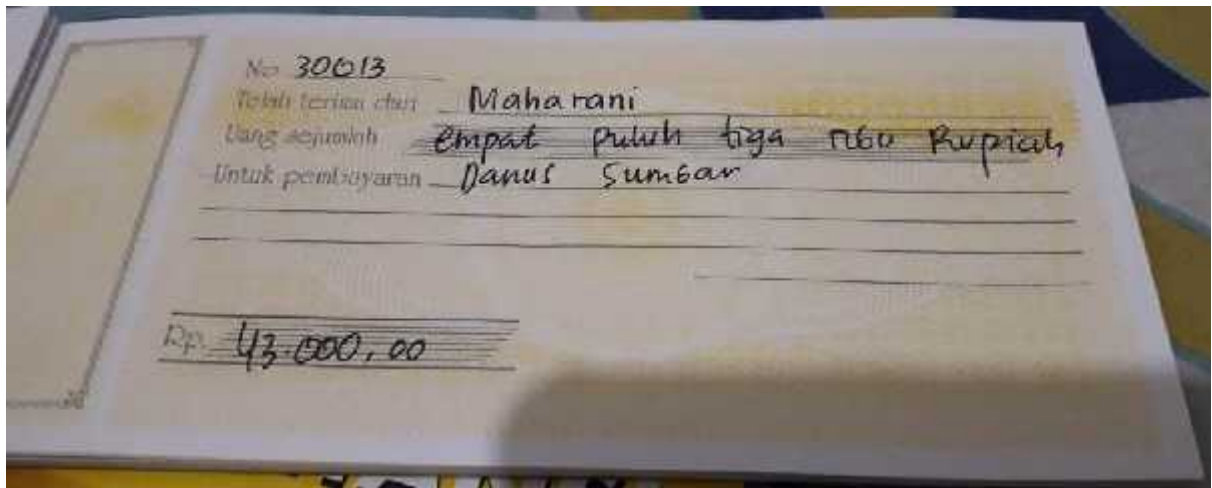 No 30013
Telah terima dari Maharani
Uang sejumlah empat puluh tiga ribu Rupiah
Untuk pembayaran Danus Sumbar
Rp. 43.000,00